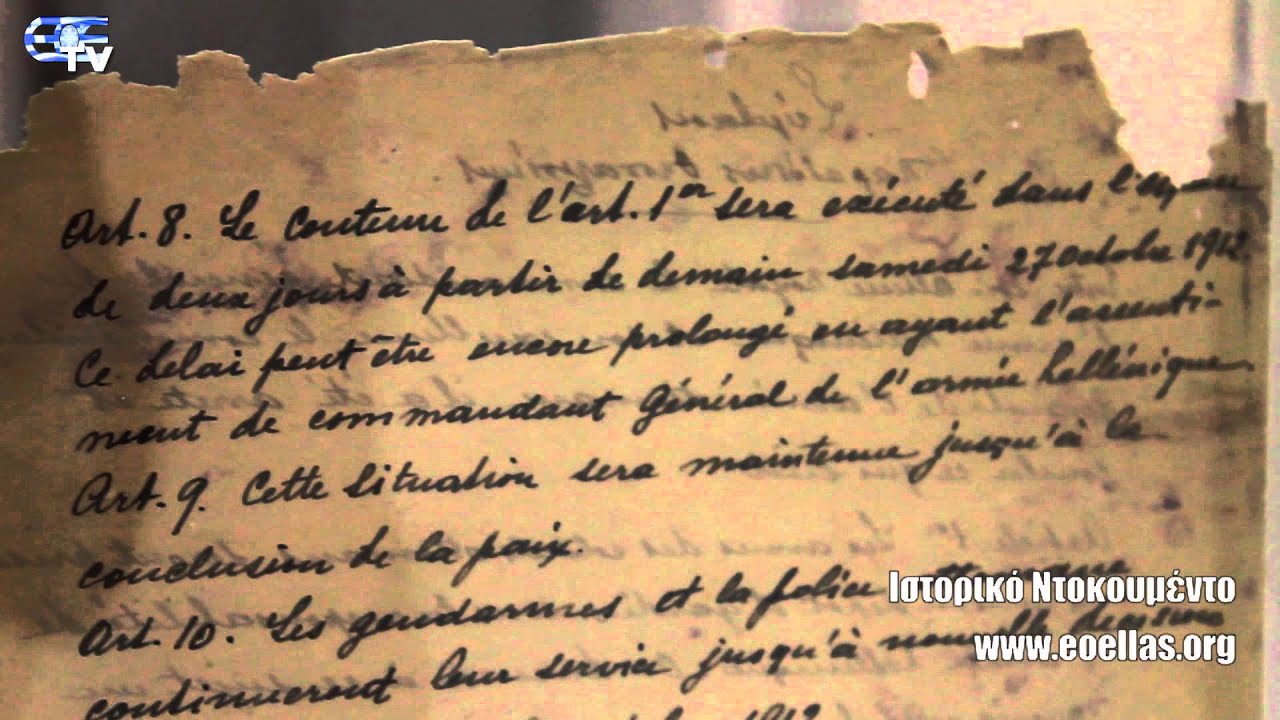 TV
Art. 8. Le contenu de l'art. 1er sera exécuté dans l'espace
de deux jours à partir de demain samedi 27 Octobre 1912.
Ce delai peut être encore prolongé en ayant l'assenti-
ment de commandant Général de l'armée hellénique.
Art. 9. Cette situation sera maintenue jusqu'à la
conclusion de la paix.
Art. 10. Les gendarmes et la police ottomane
continueront leur service jusqu'à nouvelle decision
1912
Ιστορικό Ντοκουμέντο
www.eoellas.org